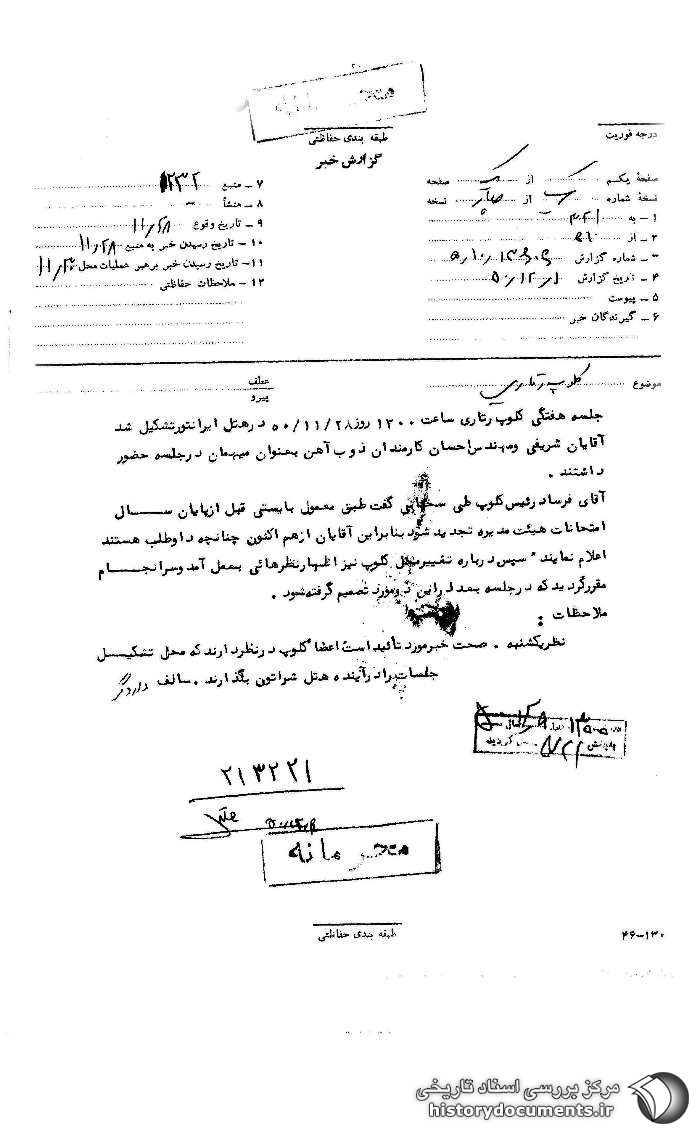 محرمانه
درجه فوریت
طبقه بندی حفاظتی
گزارش خبر
صفحهٔ یکم از یک صفحه
نسخهٔ شماره از چهار نسخه
۱ ـ به ۳۲۱
۲ ـ از
۳ ـ شماره گزارش
۴ ـ تاریخ گزارش ۵۰/۱۲/۱
۵ ـ پیوست
۶ ـ گیرندگان خبر
۷ ـ منبع ۱۲۳۲
۸ ـ منشأ
۹ ـ تاریخ وقوع ۱۱/۲۸
۱۰ ـ تاریخ رسیدن خبر به منبع ۱۱/۲۸
۱۱ ـ تاریخ رسیدن خبر برهبر عملیات محل
۱۲ ـ ملاحظات حفاظتی
موضوع کلوپ رتاری
عطف
پیرو
جلسه هفتگی کلوپ رتاری ساعت ۱۳۰۰ روز ۵۰/۱۱/۲۸ در هتل ایرانتور تشکیل شد
آقایان شریفی ومهندس احسان کارمندان ذوب آهن بعنوان میهمان درجلسه حضور
داشتند .
آقای فرساد رئیس کلوپ طی سخنانی گفت طبق معمول بایستی قبل ازپایان ســـال
امتحانات هیئت مدیره تجدید شود بنابراین آقایان ازهم اکنون چنانچه داوطلب هستند
اعلام نمایند سپس درباره تغییرمحل کلوپ نیز اظهارنظرهائی بعمل آمد وسرانجـــام
مقررگردید که درجلسه بعد دراین دومورد تصمیم گرفته شود .
ملاحظات :
نظریکشنبه . صحت خبرمورد تائید است اعضاء کلوپ درنظردارند که محل تشکیـل
جلسات را درآینده هتل شراتون بگذارند . سالف دادگر
۲۱۳۲۲۱
محرمانه
طبقه بندی حفاظتی
۴۶-۱۳۰
مرکز بررسی اسناد تاریخی
historydocuments.ir